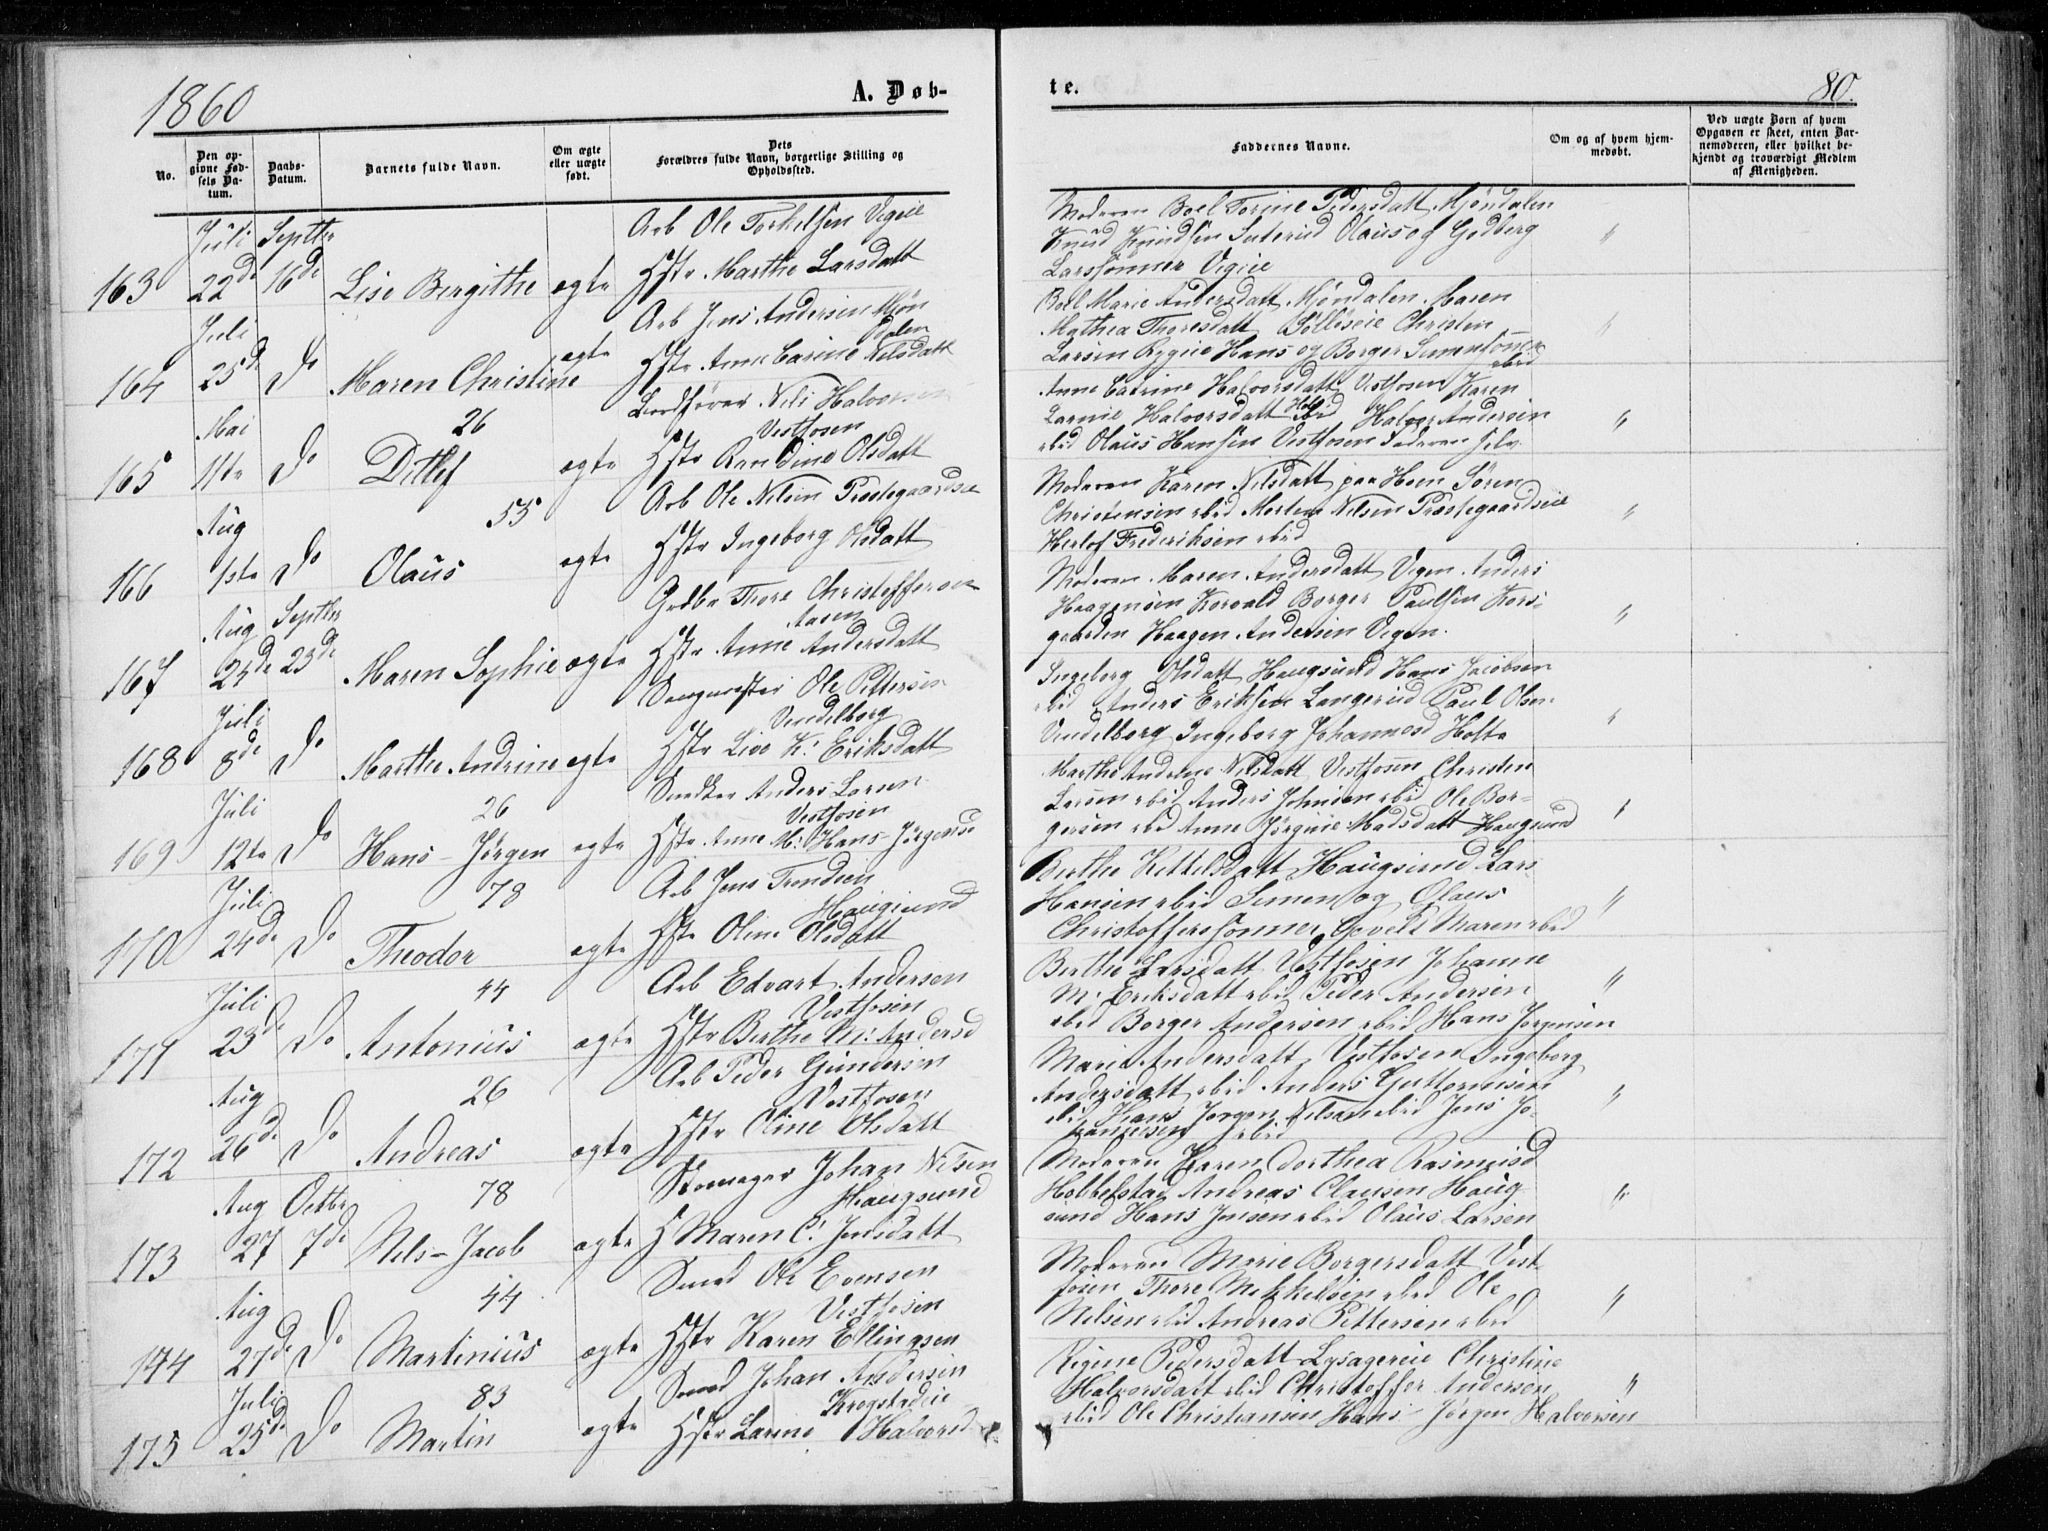 1860
A. Døb-
te.
80.
No.
Den op-
givne Fød-
sels Da-
tum.
Daabs-
Datum.
Barnets fulde Navn.
Om ægte
eller uægte
født.
Dets
Forældres fulde Navn, borgerlige Stilling og
Opholdssted.
Faddernes Navne.
Om og af hvem hjem-
medøbt.
Ved uægte Børn af hvem
Opgaven er skeet, enten Bar-
nemoderen, eller hvilket be-
kjendt og troværdigt Medlem
af Menigheden.
Juli Septbr
163 22de 16de Lise Bergithe ægte
Arb Ole Torkelsen Vegeie
Hstr Marthe Larsdatt
Moderen Boel Torine Pedersdatt Mjøndalen
Knud Knudsen Olaus og Gudberg
Larssønner Vegeie
"
Juli
164 25de Do Maren Christine ægte
Arb Jens Andersen Mjøn
dalen
Hstr Anne Carine Nilsdatt
Boel Marie Andersdatt Mjøndalen Maren
Mathea Thoresdatt Christen
Larsen Rygeie Hans og Borger
"
Mai 26
165 11te Do Ditlef ægte
Nils Halvorsen
Vestfosen
Hstr Olsdatt
Anne Catrine Halvorsdatt Vestfosen Karen
Halvorsdatt Halvor Andersen
ibid Olaus Hansen Vestfosen Faderen selv
"
Aug 55
166 1ste Do Olaus ægte
Arb Ole Nilsen Præstegaardseie
Hstr Ingeborg Olsdatt
Moderen Karen Nilsdatt paa Hoen Søren
Christensen ibid Morten Nilsen Præstegaardseie
Frederiksen ibid
"
Aug Septbr
167 25de 23de Maren Sophie ægte
Grdbr Thore Christoffersen
Aasen
Hstr Anne Andersdatt
Moderen Maren Andersdatt Vegen Anders
Haagensen Korvald Borger Paulsen Kors-
gaarden Haagen Andersen Vegen.
"
Juli
168 8de Do Marthe Andrine ægte
Ole Pettersen
Vendelborg
Hstr Live K: Eriksdatt
Ingeborg Olsdatt Haugsund Hans Jacobsen
ibid Anders Eriksen Langerud Paul Olsen
Vendelborg Ingeborg Johannesd Holte
"
Juli 26
169 12te Do Hans-Jørgen ægte
Snedker Anders Larsen
Vestfosen
Hstr Anne M: Hans-Jørgensd
Marthe Andrine Nilsdatt Vestfosen Christen
Larsen ibid Anders Johnsen ibid Ole Bor-
gersen ibid Anne Jørgine Madsdatt Haugsund
"
Juli 78
170 24de Do Theodor ægte
Arb Jens Trondsen
Haugsund
Hstr Oline Olsdatt
Berthe Kittelsdatt Haugsund Lars
Hansen ibid Simen og Olaus
Christofferssønner Maren ibid
"
Juli 44
171 23de Do Antonius ægte
Arb Edvart Andersen
Vestfosen
Hstr Berthe M: Andersd
Berthe Larsdatt Vestfosen Johanne
M: Eriksdatt ibid Peder Andersen
ibid Borger Andersen ibid Hans Jørgensen
"
Aug 26
172 26de Do Andreas ægte
Arb Peder Gundersen
Vestfosen
Hstr Oline Olsdatt
Marie Andersdatt Vestfosen Ingeborg
Andersdatt ibid Anders Guttormsen
ibid Hans Jørgen Nilsen ibid Jens Jo-
hannessen ibid
"
Aug Octbr 78
173 27 7de Nels-Jacob ægte
Skomager Johan Nilsen
Haugsund
H Maren C: Jensdatt
Moderen Karen Dorthea Rasmusd
Hobbelstad Andreas Clausen Haug-
sund Hans Jensen ibid Olaus Larsen
"
Aug 44
174 27de Do Martinius ægte
Smed Ole Evensen
Vestfosen
Hstr Karen Ellingsen
Moderen Marie Borgersdatt Vest-
fosen Thore Mikkelsen ibid Ole
Nilsen ibid Andreas Pettersen ibid
"
Juli 83
175 25de Do Martin ægte
Smed Johan Andersen
Krogstadeie
Hstr Larine Halvorsd
Regine Pedersdatt Lysagereie Christine
Halvorsdatt ibid Christoffer Andersen
ibid Ole Christiansen Hans-Jørgen Halvorsen
"